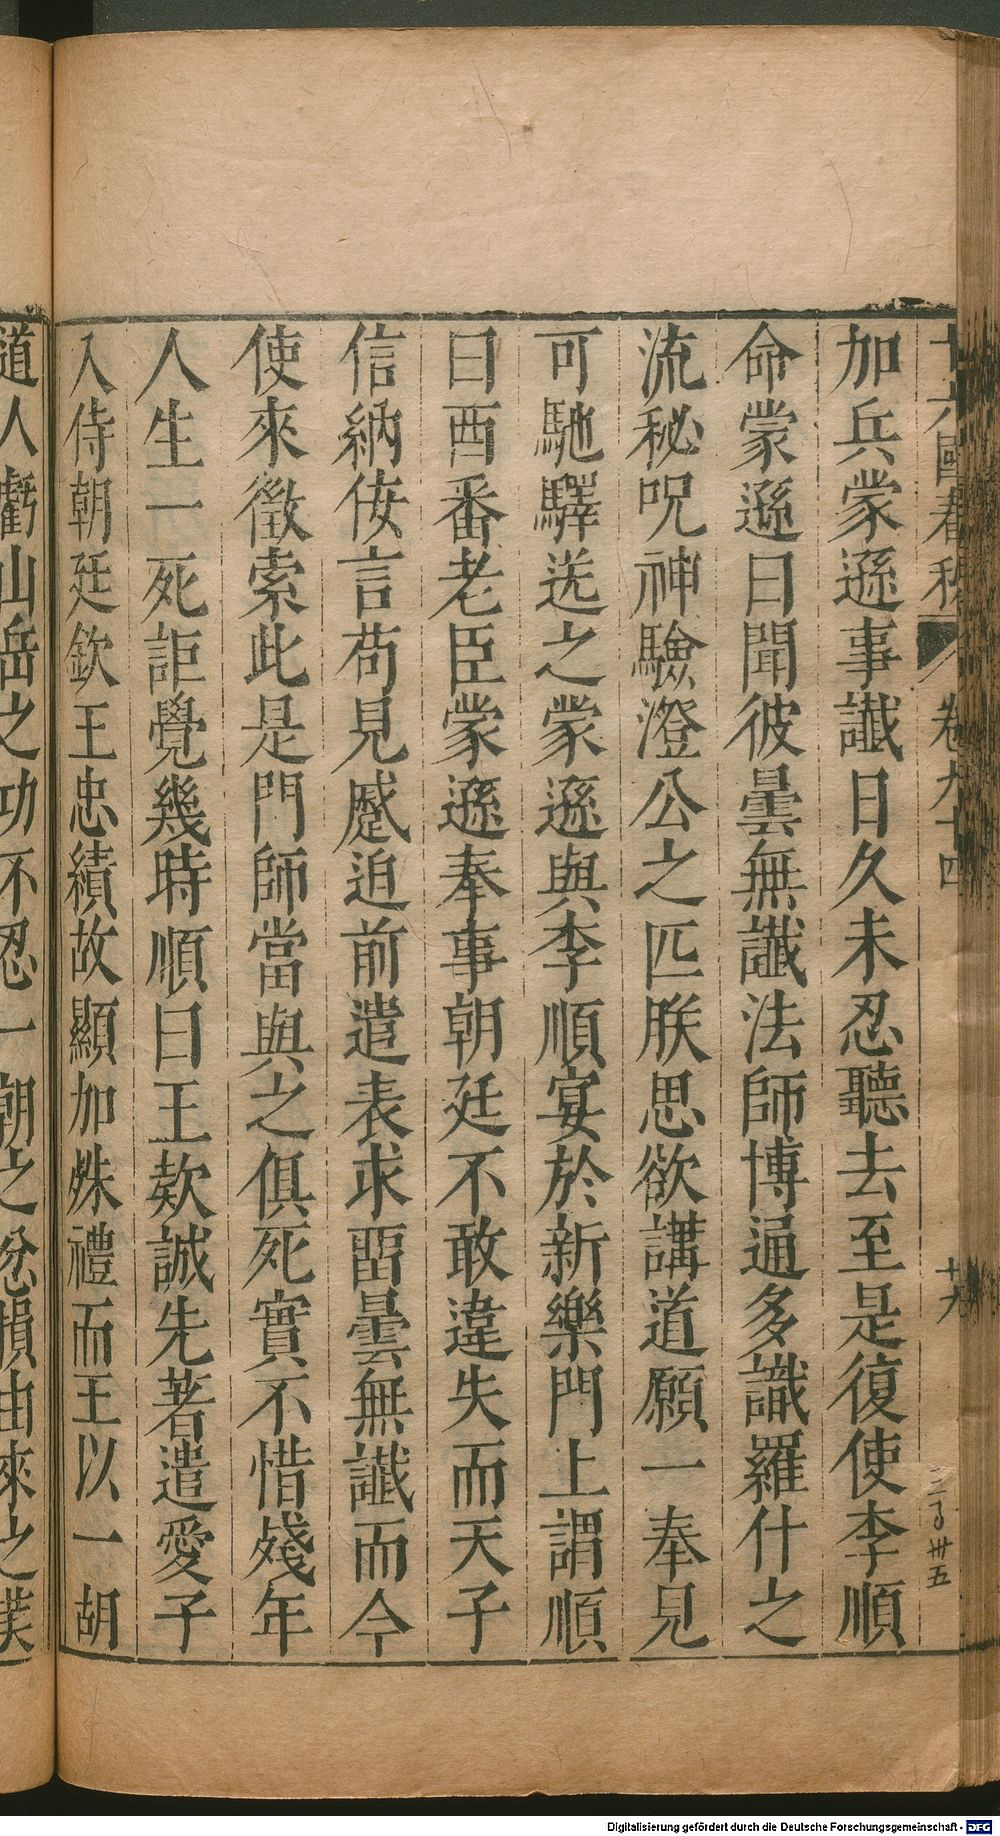 十六國春秋 卷九十四 十九
加兵蒙遜事讖日久未忍聽去至是復使李順
命蒙遜曰聞彼曇無讖法師博通多識羅什之
流秘呪神驗澄公之匹朕思欲講道願一奉見
可馳驛送之蒙遜與李順宴於新樂門上謂順
曰西番老臣蒙遜奉事朝廷不敢違失而天子
信納佞言苟見蹙迫前遣表求畱曇無讖而今
使來徵索此是門師當與之俱死實不惜殘年
人生一死詎覺幾時順曰王欵誠先著遣愛子
入侍朝廷欽王忠績故顯加殊禮而王以一胡
道人虧山岳之功不忍一朝之忿損由來之美
Digitalisierung gefördert durch die Deutsche Forschungsgemeinschaft - DFG